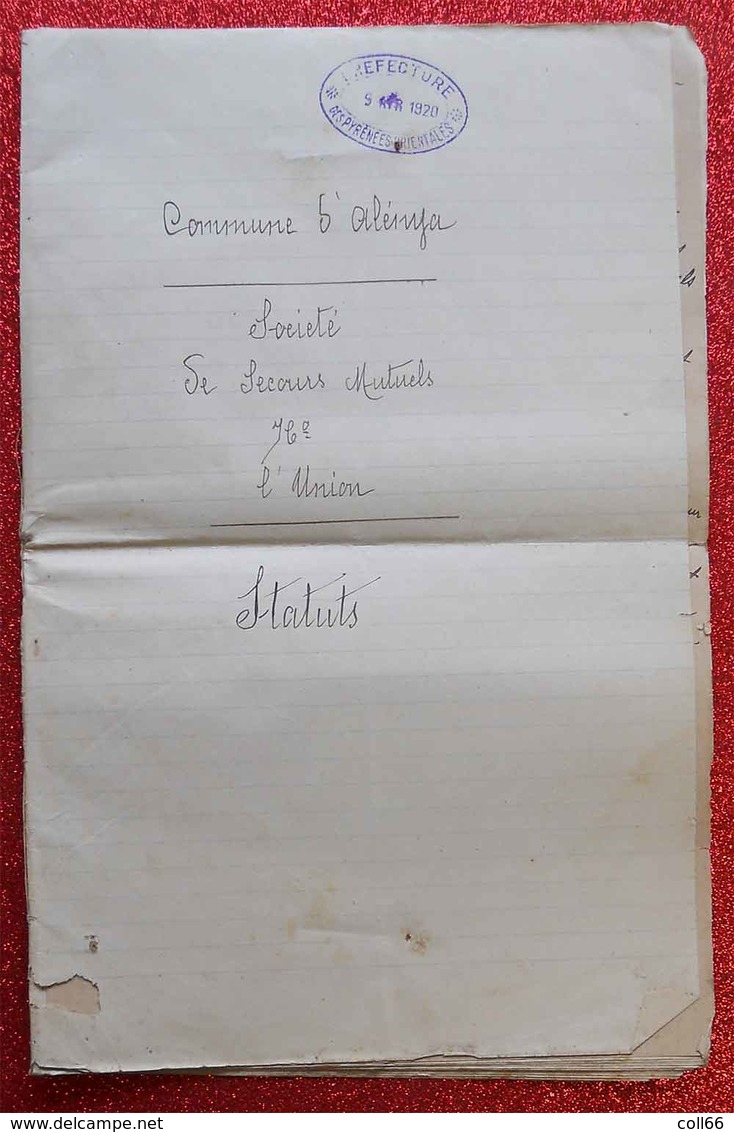 PREFECTURE
9 AVR 1920
DES PYRÉNÉES ORIENTALES
Commune d'Alénya
Societé
de Secours Mutuels
l'Union
Statuts
delcampe.net
coll66